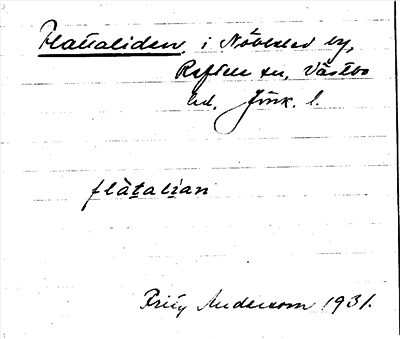 Flataliden i Nöbbeled by,
Reftele sn, Västbo
hd. Jönk. l.
flàtalian
Fritz Anderson 1931.